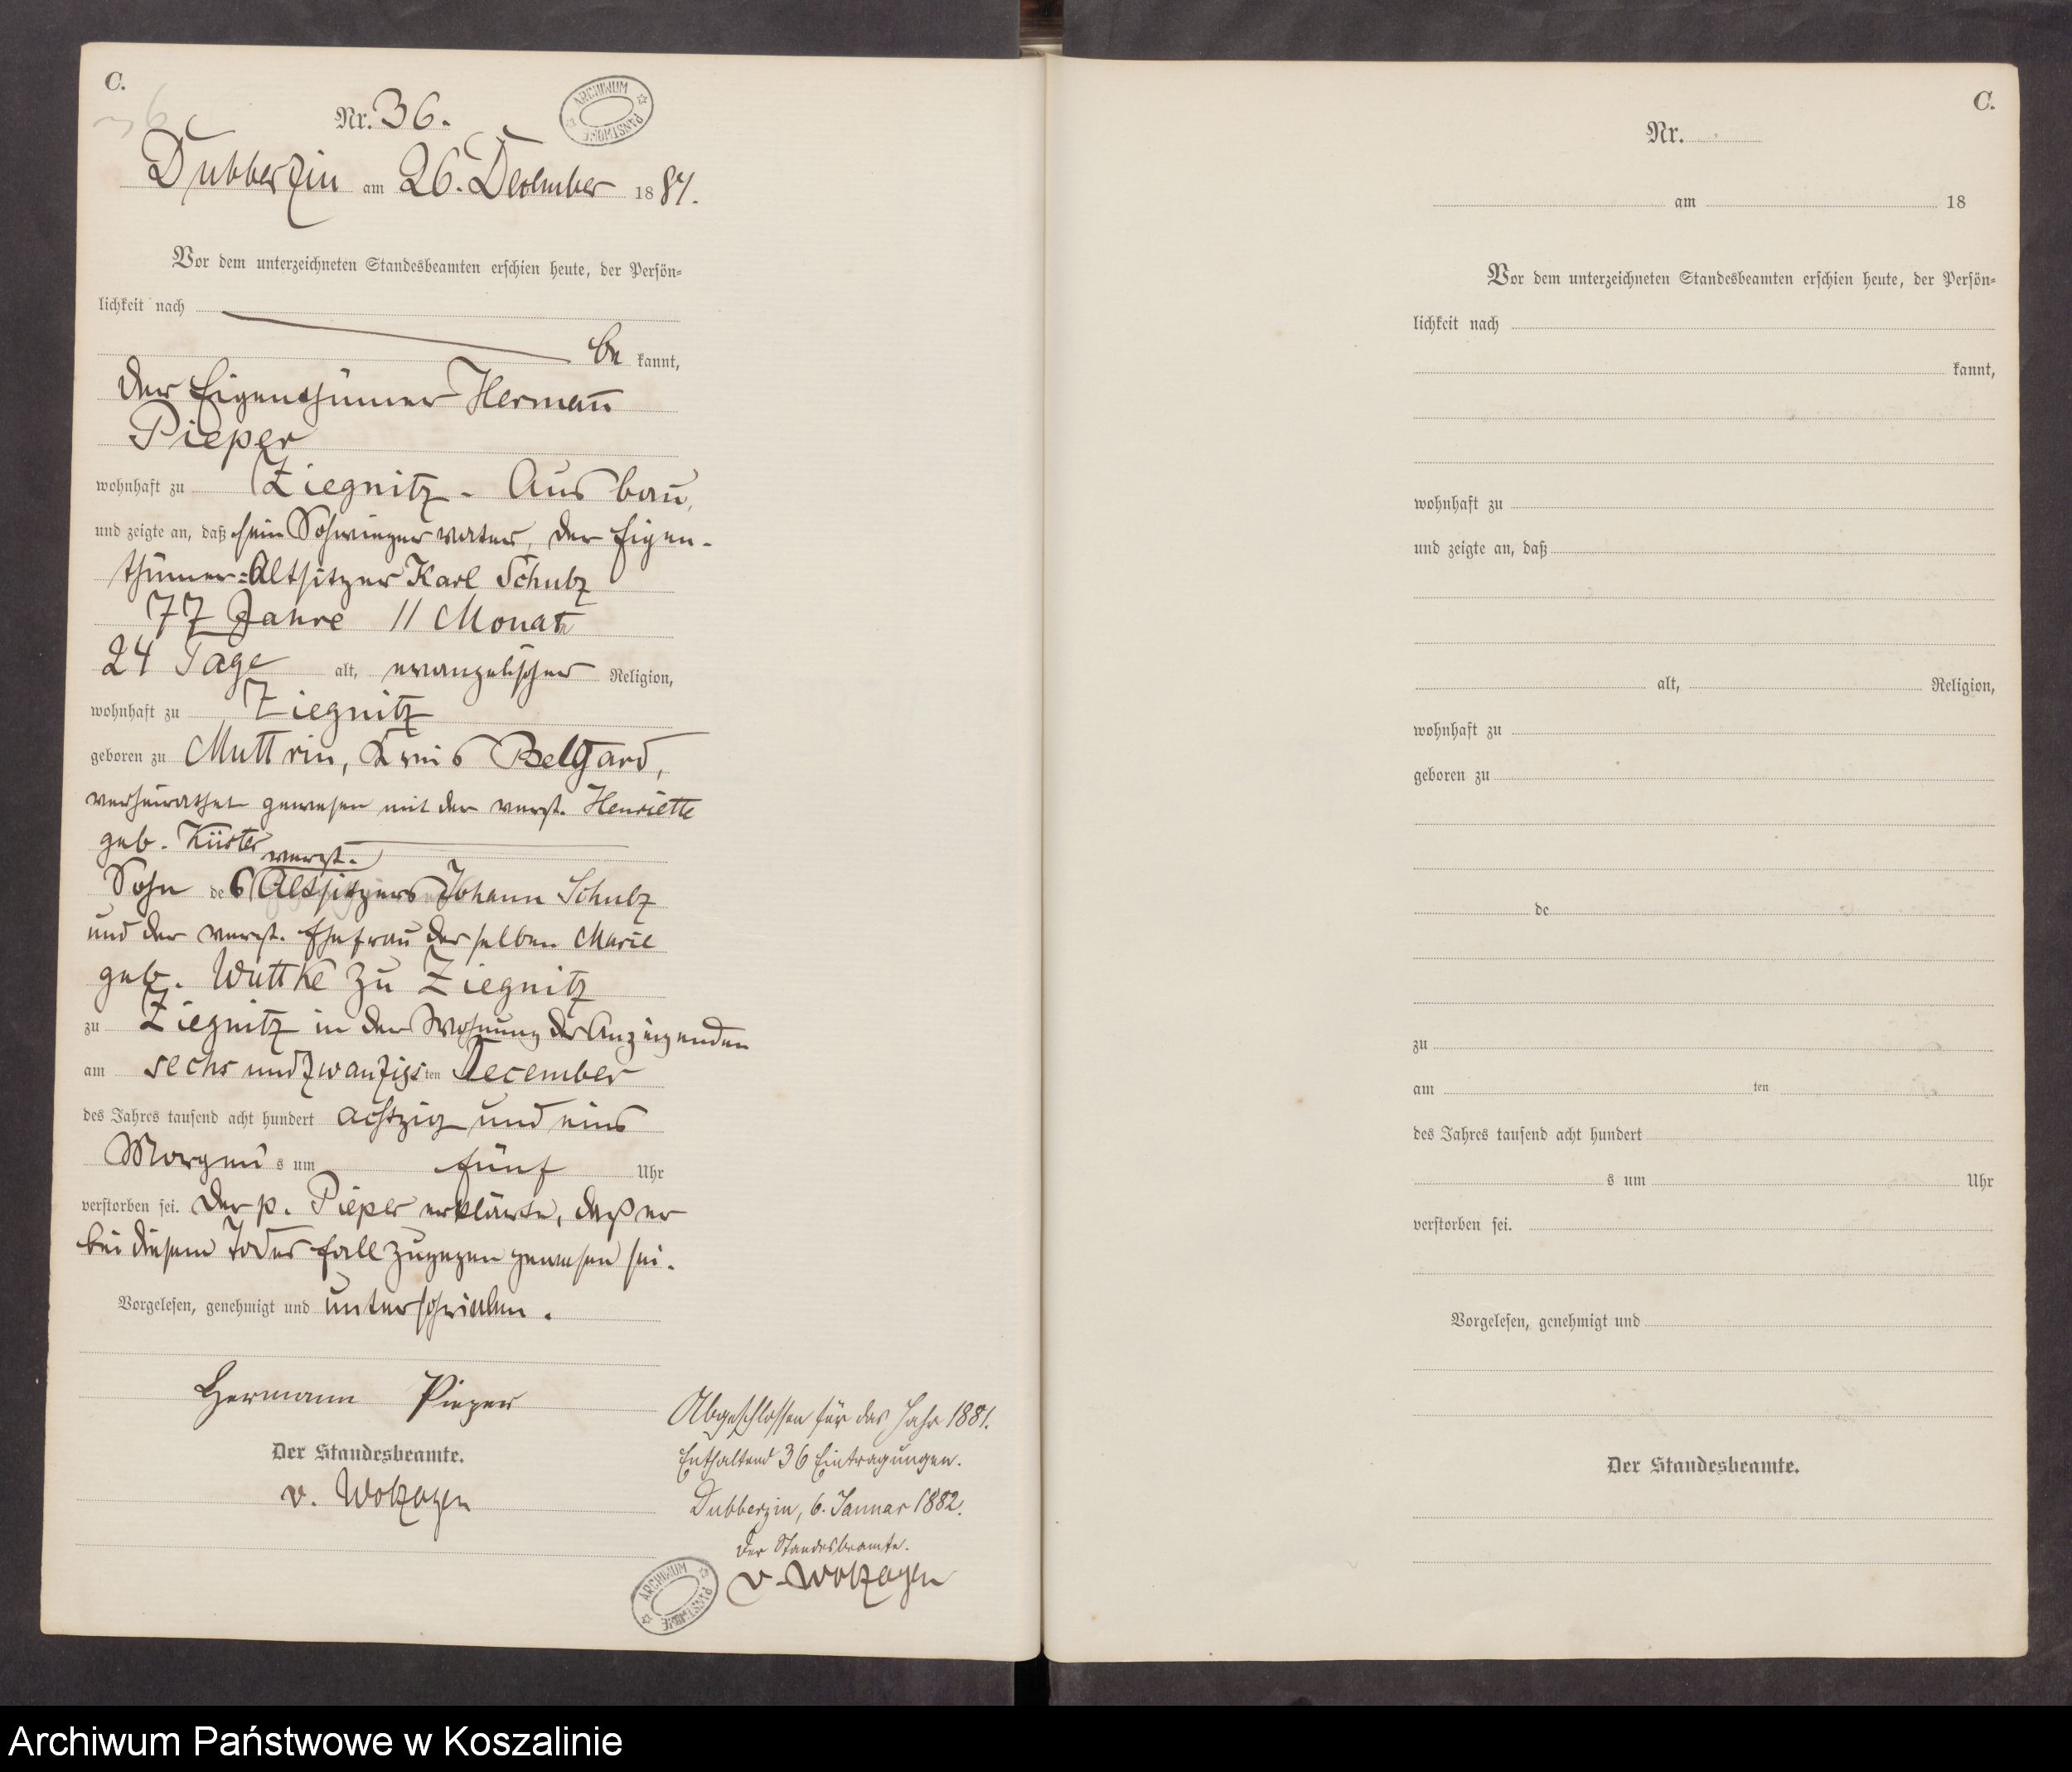 C.
36
Nr. 36.
ARCHIWUM PAŃSTWOWE
Dubberzin am 26. December 1881.
Vor dem unterzeichneten Standesbeamten erschien heute, der Persön-
lichkeit nach
be kannt,
der Eigenthümer Hermañ
Pieper
wohnhaft zu Ziegnitz - Ausbau,
und zeigte an, daß sein Schwiegervater, der Eigen-
thümer-Altsitzer Karl Schulz
77 Jahre 11 Monate
24 Tage alt, evangelischer Religion,
wohnhaft zu Ziegnitz
geboren zu Muttrin, Kreis Belgard,
verheirathet gewesen mit der verst. Henriette
geb. Küster
verst.
Sohn des Altsitzers Johann Schulz
und der verst. Ehefrau desselben Marie
geb. Wuttke zu Ziegnitz
zu Ziegnitz in der Wohnung des Anzeigenden
am sechsundzwanzigsten December
des Jahres tausend acht hundert achtzig und eins
Morgens um fünf Uhr
verstorben sei. Der p. Pieper erklärte, daß er
bei diesem Todesfall zugegen gewesen sei.
Vorgelesen, genehmigt und unterschrieben.
Hermann Pieper
Der Standesbeamte.
v. Wolzogen
Abgeschlossen für das Jahr 1881.
Enthaltend 36 Eintragungen.
Dubberzin, 6. Januar 1882.
Der Standesbeamte.
v. Wolzogen
ARCHIWUM PAŃSTWOWE
C.
Nr.
am 18
Vor dem unterzeichneten Standesbeamten erschien heute, der Persön-
lichkeit nach
kannt,
wohnhaft zu
und zeigte an, daß
alt, Religion,
wohnhaft zu
geboren zu
de
zu
am ten
des Jahres tausend acht hundert
s um Uhr
verstorben sei.
Vorgelesen, genehmigt und
Der Standesbeamte.
Archiwum Państwowe w Koszalinie